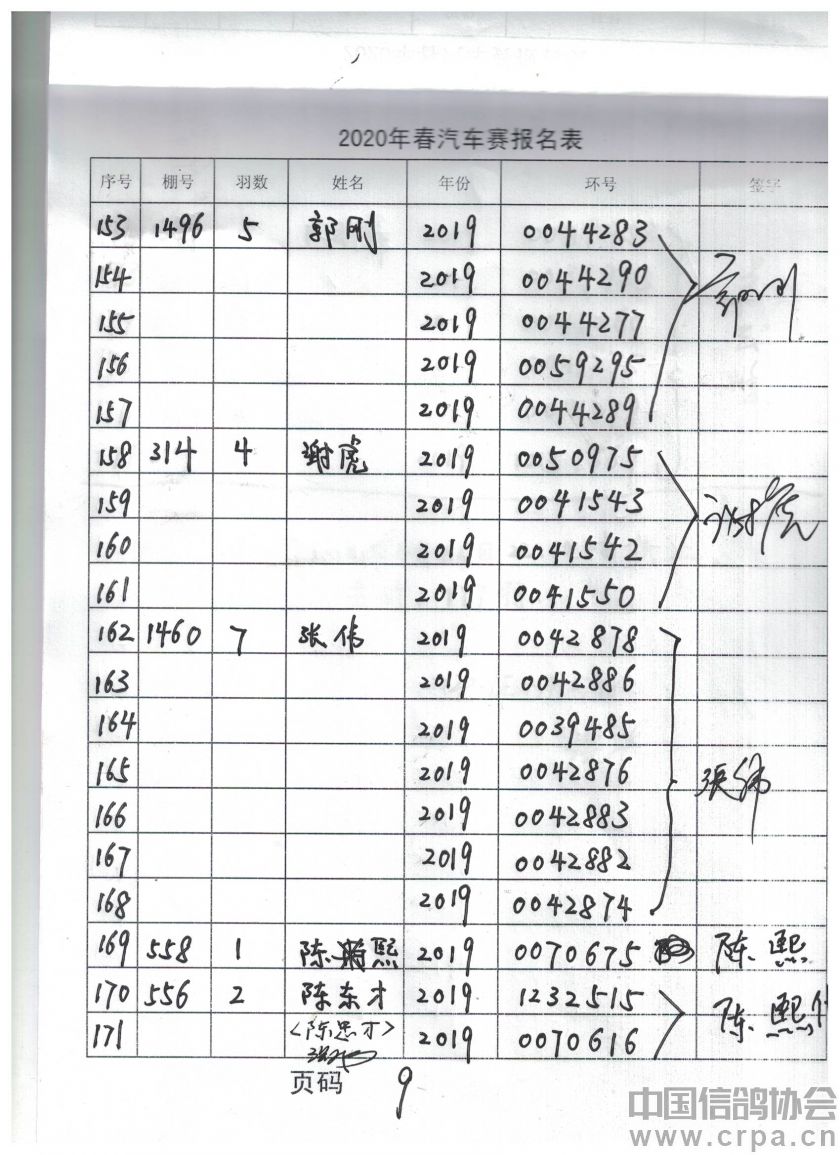 2020年春汽车赛报名表
序号 棚号 羽数 姓名 年份 环号 签字
153 1496 5 郭刚 2019 0044283
154 2019 0044290 郭刚
155 2019 0044277
156 2019 0059295
157 2019 0044289
158 314 4 谢虎 2019 0050975
159 2019 0041543 谢虎
160 2019 0041542
161 2019 0041550
162 1460 7 张伟 2019 0042878
163 2019 0042886
164 2019 0039485
165 2019 0042876 張伟
166 2019 0042883
167 2019 0042882
168 2019 0042874
169 558 1 陈熙 2019 0070675 陈熙
170 556 2 陈东才 2019 1232515 陈熙代
171 <陈思才> 2019 0070616
页码 9
中国信鸽协会
www.crpa.cn